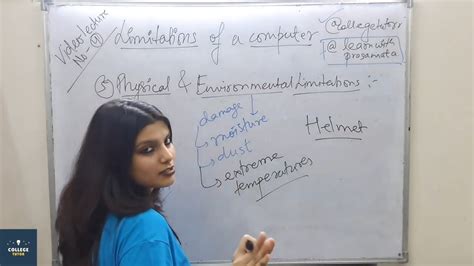 Video lecture
No. 4
Limitations of a computer
@collegetutor
@ learn with
prasamata
⑤ Physical & Environmental Limitations :-
damage
moisture
dust
extreme
temperatures
Helmet
COLLEGE
TUTOR